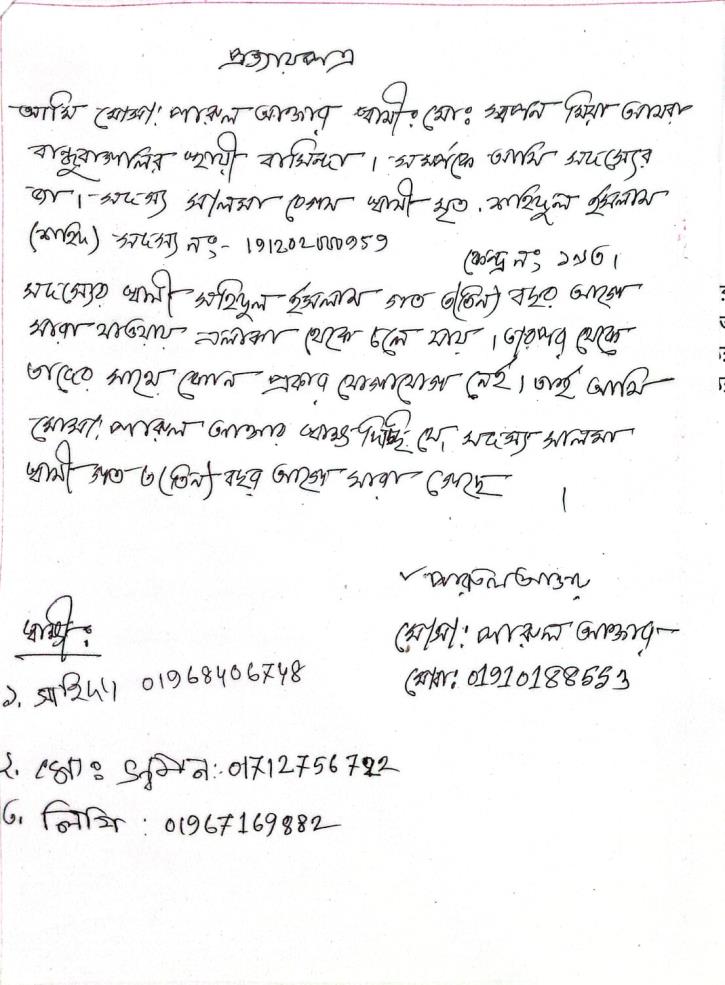 প্রত্যয়নপত্র
আমি মোসা: পারুল আক্তার স্বামী: মো: স্বপন মিয়া আমরা
স্থায়ী বাসিন্দা । সম্পর্কে আমি সদস্যের
জা । সদস্য সালমা বেগম স্বামী মৃত . শহিদুল ইসলাম
(শহিদ) সদস্য নং- 191202000959
কেন্দ্র নং ১৯৩।
সদস্যের স্বামী সহিদুল ইসলাম গত ৩(তিন) বছর আগে
মারা যাওয়ায় এলাকা থেকে চলে যায় । তারপর থেকে
তাদের সাথে কোন প্রকার যোগাযোগ নেই । তাই আমি
মোসা: পারুল আক্তার স্বাক্ষ্য দিচ্ছি যে, সদস্য সালমা
স্বামী গত ৩(তিন) বছর আগে মারা গেছে ।
পারুল আক্তার
মোসা: পারুল আক্তার
মোবা: 01910188553
স্বাক্ষী :
১. সাহিদা 01968406748
২. মোঃ মমিন: 01712756722
৩. লিপি : 01967169882